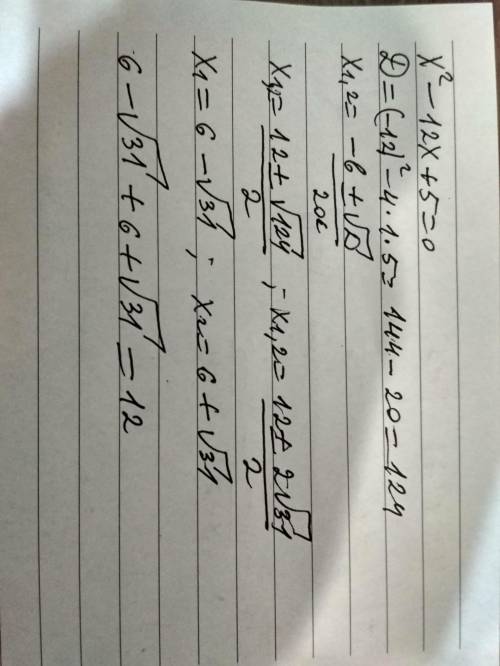 x² - 12x + 5 = 0
D = (-12)² - 4·1·5 = 144 - 20 = 124
x1,2 = (-b ± √D) / 2a
x1,2 = (12 ± √124) / 2 ; x1,2 = (12 ± 2√31) / 2
x1 = 6 - √31 ; x2 = 6 + √31
6 - √31 + 6 + √31 = 12